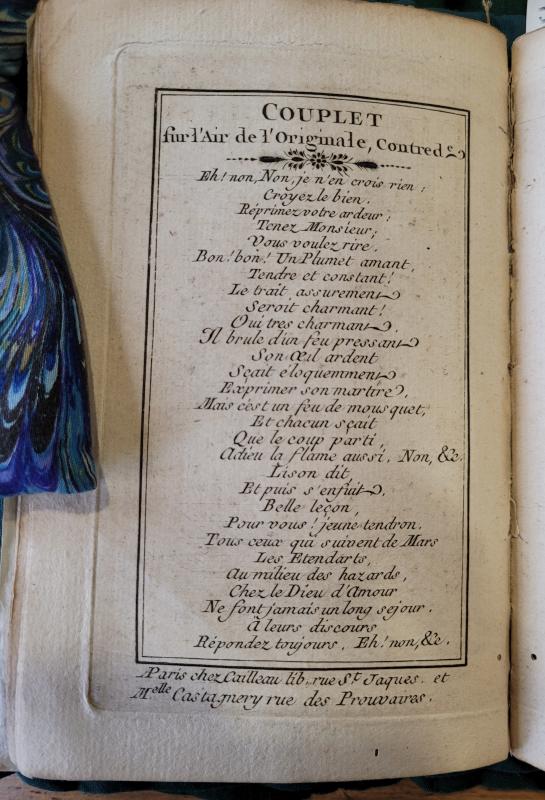 COUPLET
sur l'Air de l'Originale, Contred.
Eh! non, Non, je n'en crois rien;
Croyez le bien.
Réprimez votre ardeur;
Tenez Monsieur;
Vous voulez rire.
Bon! bon! Un Plumet amant,
Tendre et constant!
Le trait assurement
Seroit charmant!
Oui tres charmant.
Il brule d'un feu pressant
Son Œil ardent
Sçait éloquemment
Exprimer son martire.
Mais c'est un feu de mousquet,
Et chacun sçait
Que le coup parti,
Adieu la flame aussi. Non, &c.
Lison dit,
Et puis s'enfuit.
Belle leçon,
Pour vous! jeune tendron.
Tous ceux qui suivent de Mars
Les Etendarts,
Au milieu des hazards,
Chez le Dieu d'Amour
Ne font jamais un long sejour.
A leurs discours
Répondez toujours. Eh! non, &c.
A Paris chez Cailleau lib. rue St. Jaques. et
Melle Castagnery rue des Prouvaires.